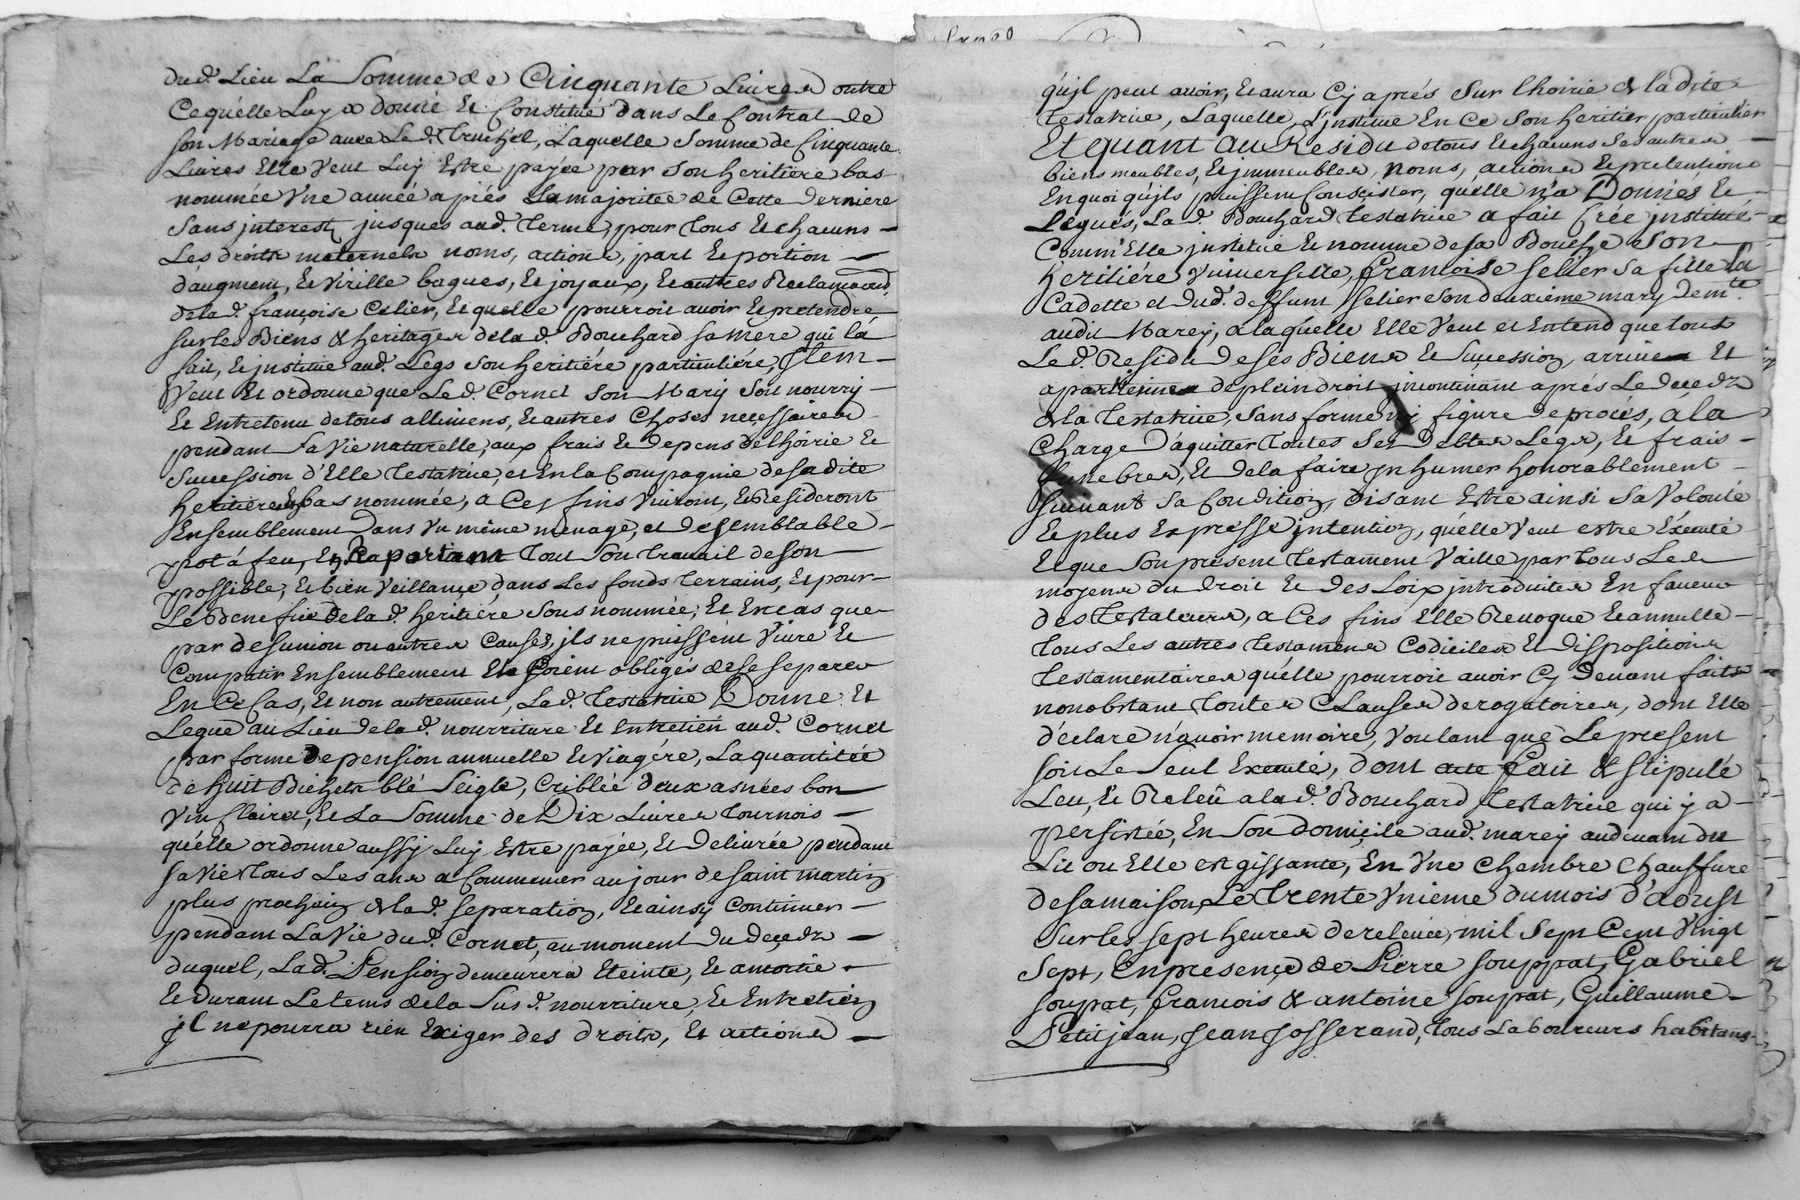 dud. Lieu La Somme de Cinquante Livres outre
Ce quélle Luy a donné Et Constitué dans Le Contrat de
son Mariage avec Le d. Truchel, Laquelle Somme de Cinquante
Livres Elle veut Luy Estre payée par Son heritiere bas
nommée Une année aprés La majoritee de Cette derniere
Sans interest jusques aud. terme, pour tous Et chacuns
Les droits maternels noms, actions, part Et portion
d'augment, Et virille bagues, Et joyaux, Et autres
de la d. françoise Celier, Et quelle pourroit avoir Et pretendre
sur les Biens & heritages de la d. Bouchard sa mere qui la
fait, Et institue aud. Legs Son heritiére particuliére, Item
Veut Et ordonne que Le d. Cornet Son Mary Soit nourry
Et Entretenu de tous allimens, Et autres Choses necessaires
pendant sa vie naturelle, aux frais Et depens de L'hoirie Et
Succession d'Elle testatrice, et En la Compagnie de sadite
heritiere bas nommée, a Ces fins vivront, Et Resideront
Ensemblement dans un même menage, et de semblable
pot á feu, En Raportant tout Son travail de son
possible, Et bien veillance dans Les fonds terrains, Et pour
Le Benefice de la d. heritiére Sous nommée; Et En cas que
par desunion ou autres Causes, ils ne puissent Vivre Et
Compatir Ensemblement Et Soient obligés de Se Separer
En Ce Cas, Et non autrement, La d. testatrice Donne Et
Legue au Lieu de la d. nourriture Et Entretien aud. Cornet
par forme de pension annuelle Et viagére, La quantitée
de huit Bichets blé Seigle, Criblée deux asnées bon
vin Clairet, Et La Somme de Dix Livres tournois
quélle ordonne aussy Luy Estre payée, Et delivrée pendant
sa vie tous Les ans a Commencer au jour de saint martin
plus prochain de la d. separation, Et ainsy Continuer
pendant La Vie du d. Cornet, au moment du deçedz
duquel, La d. Pension demeurera Eteinte, Et amortie
Et durant Le tems de la Sus d. nourriture, Et Entretien
jl ne pourra rien Exiger des droits, Et actions
qu'jl peut avoir, Et aura Cy aprés Sur L'hoirie de la dite
testatrice, Laquelle L'institue En Ce Son heritier particulier
Et quant au Residu de tous Et chacuns Ses autres
biens meubles, Et jmmeubles, Noms, actions Et pretentions
En quoi qu'jls puissent Consister, quelle n'a Donnés Et
Legués, La d. Bouchard testatrice a fait Crée jnstitué
Comm'Elle jnstitue Et nomme de sa Bouche Son
heritiére Universelle, françoise selier sa fille
Cadette et dud. deffunt selier son deuxiéme mary dem.te
audit Marey, a laquelle Elle Veut et Entend que tout
Le d. Residu de ses Biens Et Succession arrive Et
apartienne de plein droit jncontinant aprés Le decedz
de la testatrice, Sans forme ny figure de procés, á la
Charge d'aquitter toutes Ses Debtes Legs, Et frais
funebres, Et de la faire jnhumer honorablement
suivant Sa Condition, disant Estre ainsi Sa volonté
Et plus Expresse jntention, quélle veut estre Executé
Et que Son present testament Vaille par tous Les
moyens du droit Et des Loix jntroduites En faveur
des testateurs, a Ces fins Elle Revoque Et annulle
tous Les autres testamens Codiciles Et dispositions
testamentaires quélle pourroit avoir Cy devant faits
nonobstant toutes Clauses derogatoires, dont Elle
déclare n'avoir memoire, voulant que Le present
soit Le Seul Executé, dont acte fait & stipulé
Leu, & Releü a la d. Bouchard testatrice qui y a
persistée, En Son domicile aud. marey au devant du
Lit ou Elle est gissante, En Une Chambre Chauffure
de sa maison, Le trente Unieme du mois d'aoust
sur les sept heures de relevée, mil Sept Cent Vingt
Sept, En presençe de Pierre souppat, Gabriel
soupat, francois & antoine soupat, Guillaume
Petitjean, Jean Josserand, tous Laboureurs habitans